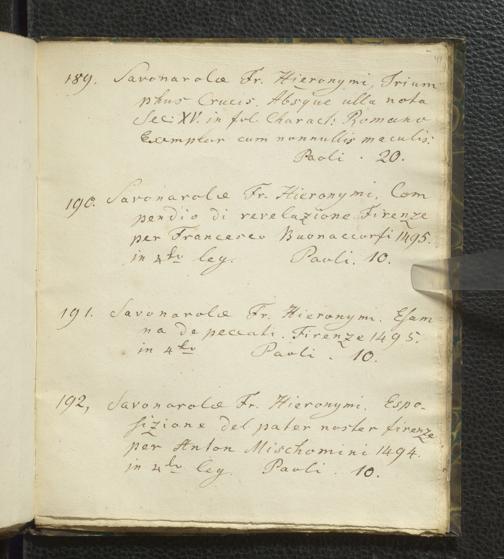 189. Savonarolæ Fr. Hieronymi, Trium
phus Crucis. Absque ulla nota
Sec: XV. in fol. Charact: Romano
Exemplar cum nonnullis maculis.
Paoli . 20.
190. Savonarolæ Fr. Hieronymi, Com
pendio di revelazione Firenze
per Francesco Buonaccorsi 1495.
in 4to leg. Paoli. 10.
191. Savonarolæ Fr. Hieronymi. Esam
na de peccati. Firenze 1495.
in 4to Paoli . 10.
192, Savonarolæ Fr. Hieronymi. Espo-
sizione del pater noster firenze
per Anton Mischomini 1494.
in 4to leg. Paoli . 10.